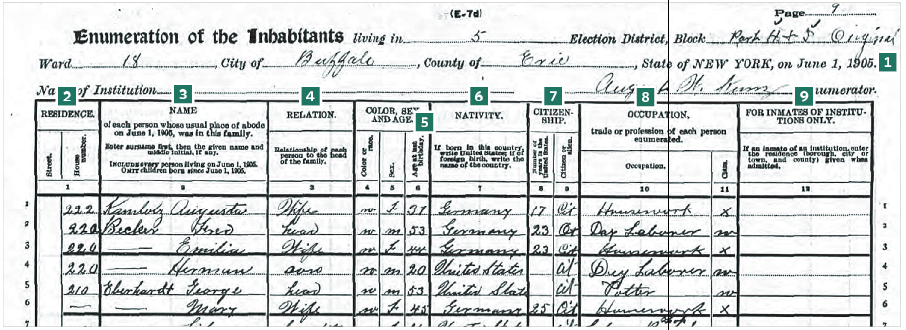 (E-7d)
Page 9
Enumeration of the Inhabitants living in 5 Election District, Block Part H & I Original
Ward 18, City of Buffalo, County of Erie, State of NEW YORK, on June 1, 1905. 1
Name of Institution August W. Enumerator.
2 3 4 5 6 7 8 9
RESIDENCE. NAME RELATION. COLOR, SEX AND AGE. NATIVITY. CITIZENSHIP. OCCUPATION, FOR INMATES OF INSTITUTIONS ONLY.
Street. House number.
of each person whose usual place of abode on June 1, 1905, was in this family.
Enter surname first, then the given name and middle initial, if any.
INCLUDE every person living on June 1, 1905. OMIT children born since June 1, 1905.
Relationship of each person to the head of the family.
Color or race. Sex. Age at last birthday.
If born in this country, write United States; if of foreign birth, write name of the country.
Number of years in the United States. Citizen or alien.
trade or profession of each person enumerated.
Occupation. Class.
If an inmate of an institution, enter the residence borough, city or town, and county given when admitted.
1 2 3 4 5 6 7 8 9 10 11 12
1 222 Augusta Wife w F 37 Germany 17 Cit Housework x 1
2 220 Becker Fred Head w m 53 Germany 23 Cit Day Laborer w 2
3 220 — Emilia Wife w F 44 Germany 23 Cit Housework x 3
4 220 — Herman sons w m 20 United States Cit Day Laborer w 4
5 210 Eberhardt George Head w m 53 United State Cit Potter w 5
6 — — Mary Wife w F 45 Germany 25 Cit Housework x 6